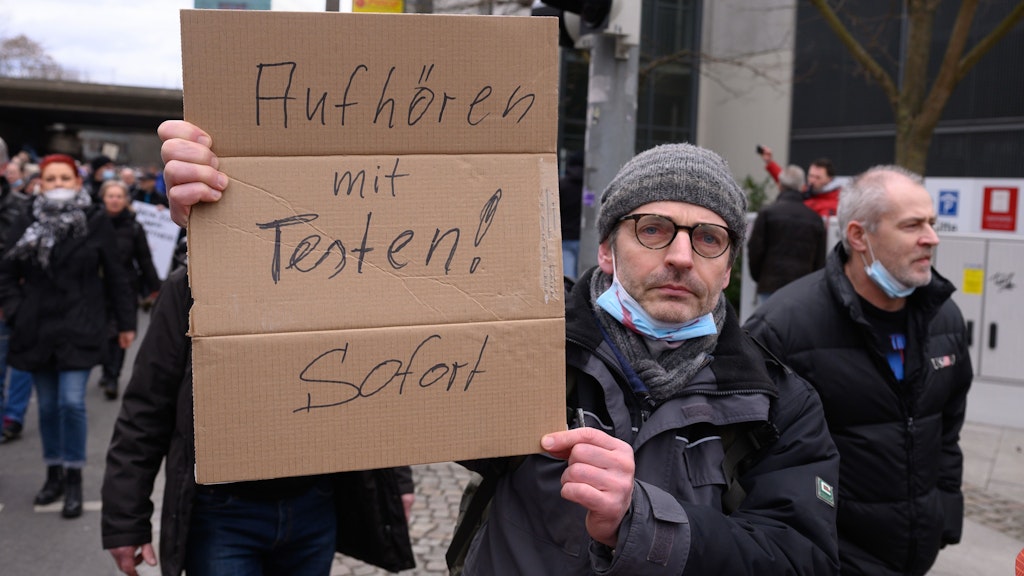 Aufhören
mit
Testen!
Sofort